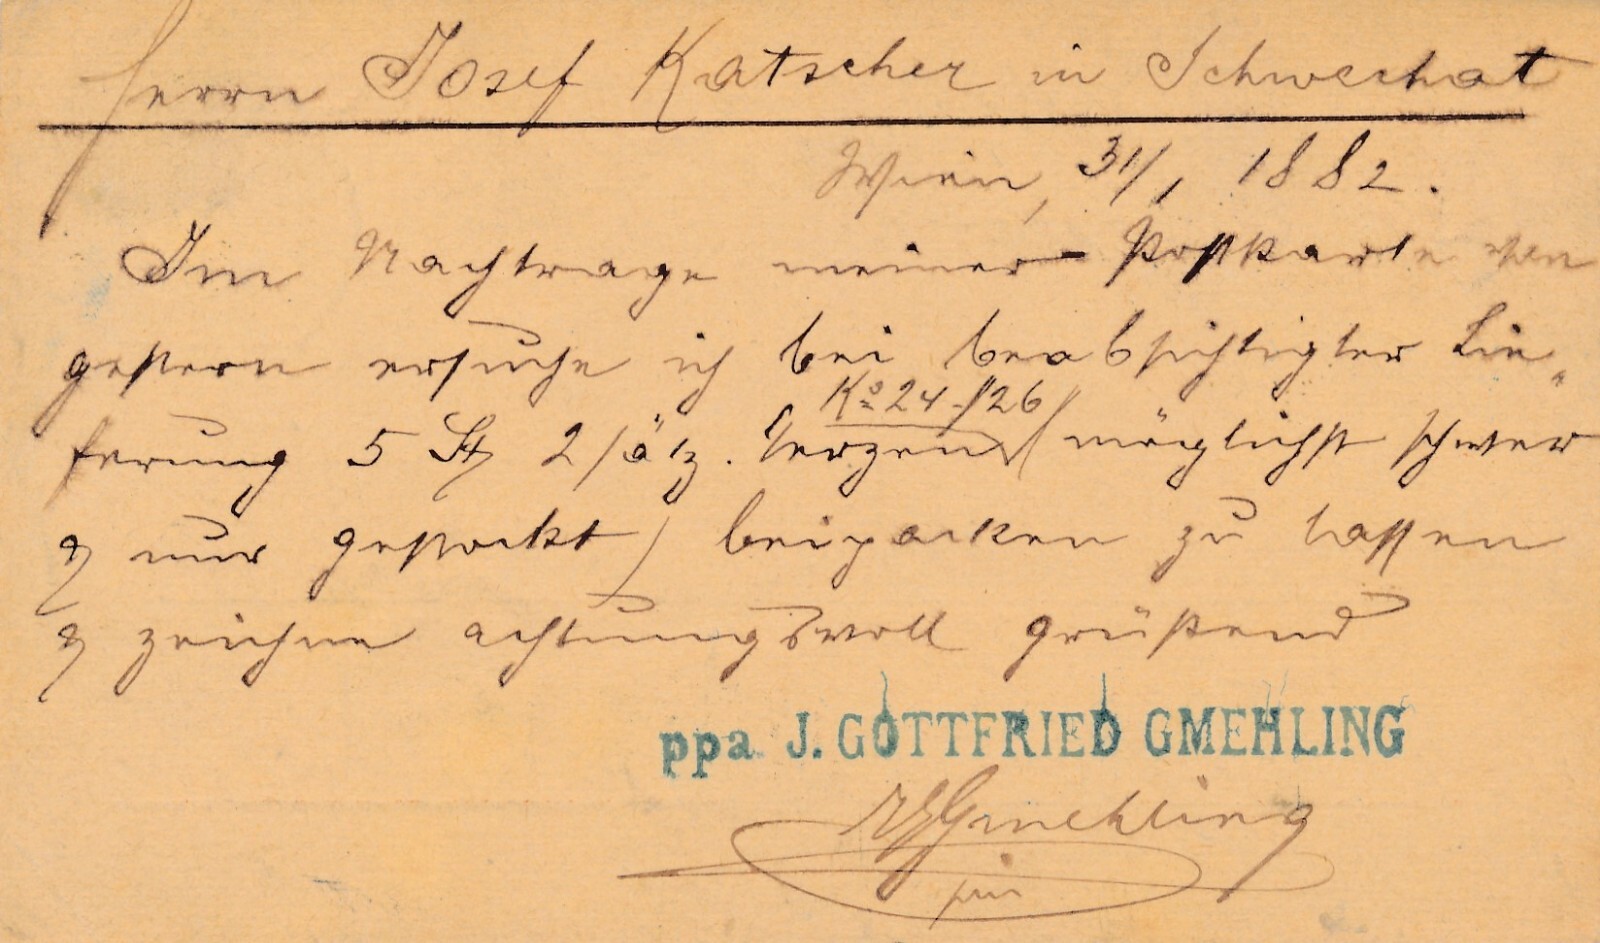 Herrn Josef Katscher in Schwechat
Wien, 31/1 1882.
Im Nachtrage meiner Postkarte von
gestern ersuche ich bei beabsichtigter Lie„
Ko 24-/26
ferung 5 St 2/ätz. (möglichst schwer
& nur gestockt) beipacken zu lassen
& zeichne achtungsvoll grüßend
ppa J. GOTTFRIED GMEHLING
Gmehling
jun